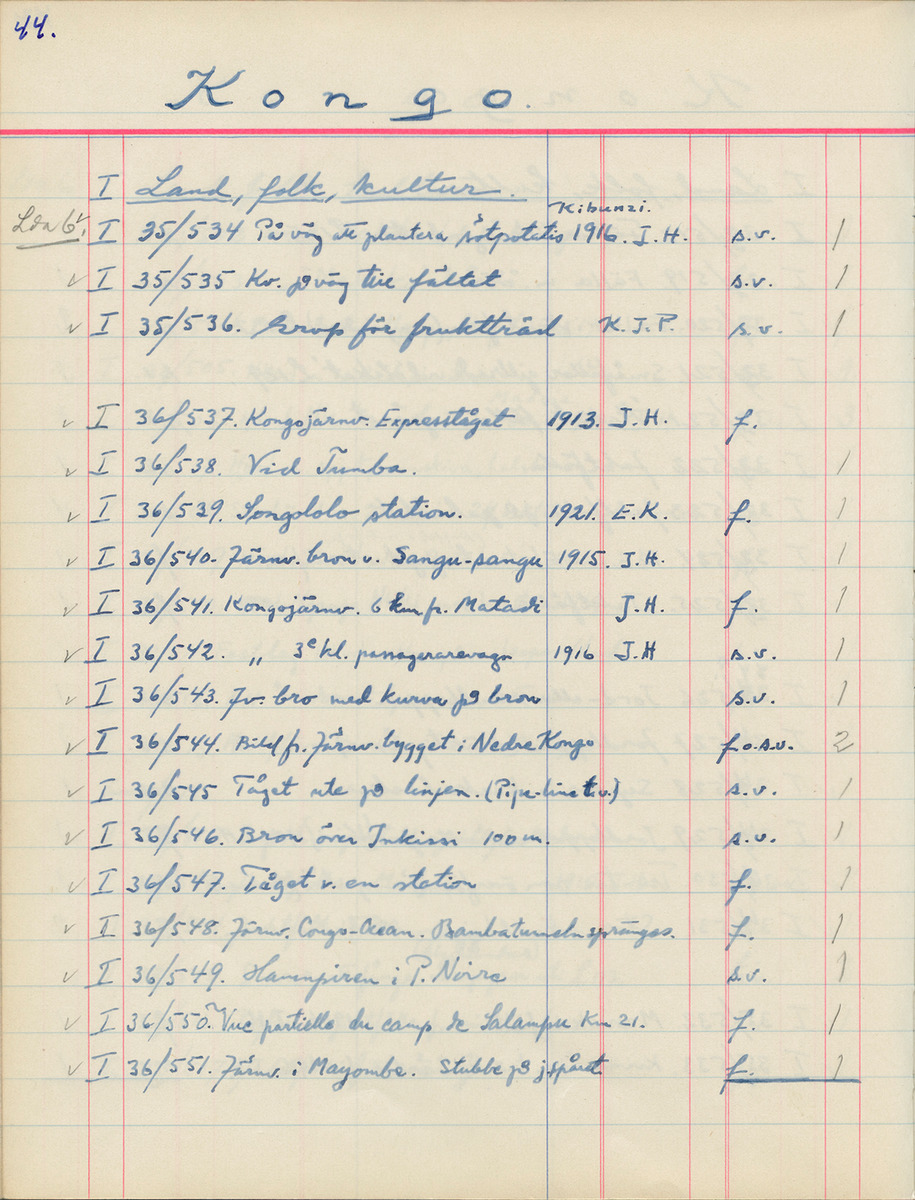 44.
Kongo.
I Land, folk, kultur.
Kibunzi.
Lda 6 I 35/534 På väg att plantera sötpotatis 1916. J.H. s.v. 1
✓ I 35/535 Kv. på väg till fältet s.v. 1
✓ I 35/536. Grop för fruktträd K.J.P. s.v. 1
✓ I 36/537. Kongojärnv. Expresståget 1913. J.H. f.
✓ I 36/538. Vid Tumba. 1
✓ I 36/539. Songololo station. 1921. E.K. f. 1
✓ I 36/540. Järnv. bron v. Sangu-sangu 1915. J.H. 1
✓ I 36/541. Kongojärnv. 6 km fr. Matadi J.H. f. 1
✓ I 36/542. „ 3e kl. passagerarevagn 1916 J.H s.v. 1
✓ I 36/543. Jv. bro med kurva på bron s.v. 1
✓ I 36/544. Bild fr. Järnv. bygget i Nedre Kongo f.o.s.v. 2
✓ I 36/545 Tåget ute på linjen. (Pipe-line t.v.) s.v. 1
✓ I 36/546. Bron över Inkissi 100 m. s.v. 1
✓ I 36/547. Tåget v. en station f. 1
✓ I 36/548. Järnv. Congo-Ocean. Bambatunneln spränges. f. 1
✓ I 36/549. Hamnpiren i P. Noire s.v. 1
✓ I 36/550. Vue partielle du camp de Salampu Km 21. f. 1
✓ I 36/551. Järnv. i Mayombe. Stubbe på jspåret f. 1